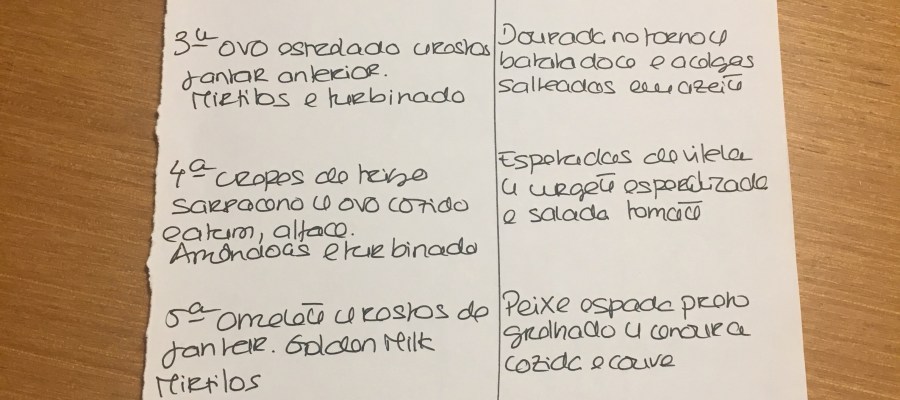 3ª ovo estrelado c/ restos
jantar anterior.
Mirtilos e turbinado
Dourada no forno c/
batata doce e acelgas
salteadas em azeite
4ª crepes de trigo
sarraceno c/ ovo cozido
e atum, alface.
Amêndoas e turbinado
Espetadas de vitela
c/ curgete espiralizada
e salada tomate
5ª omelete c/ restos de
jantar. Golden Milk
Mirtilos
Peixe espada preto
grelhado c/ cenoura
cozida e couve